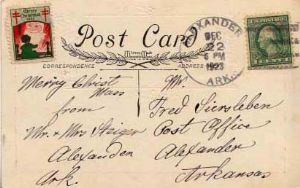 Merry Christmas
Post Card
ALEXANDER
DEC
22
6 PM
1923
ARK.
CORRESPONDENCE
ADDRESS
Merry Christ
mass
from
Mr. & Mrs Steiger
Alexander
Ark.
Mr.
Fred Siersleben
Post Office
Alexander
Arkansas